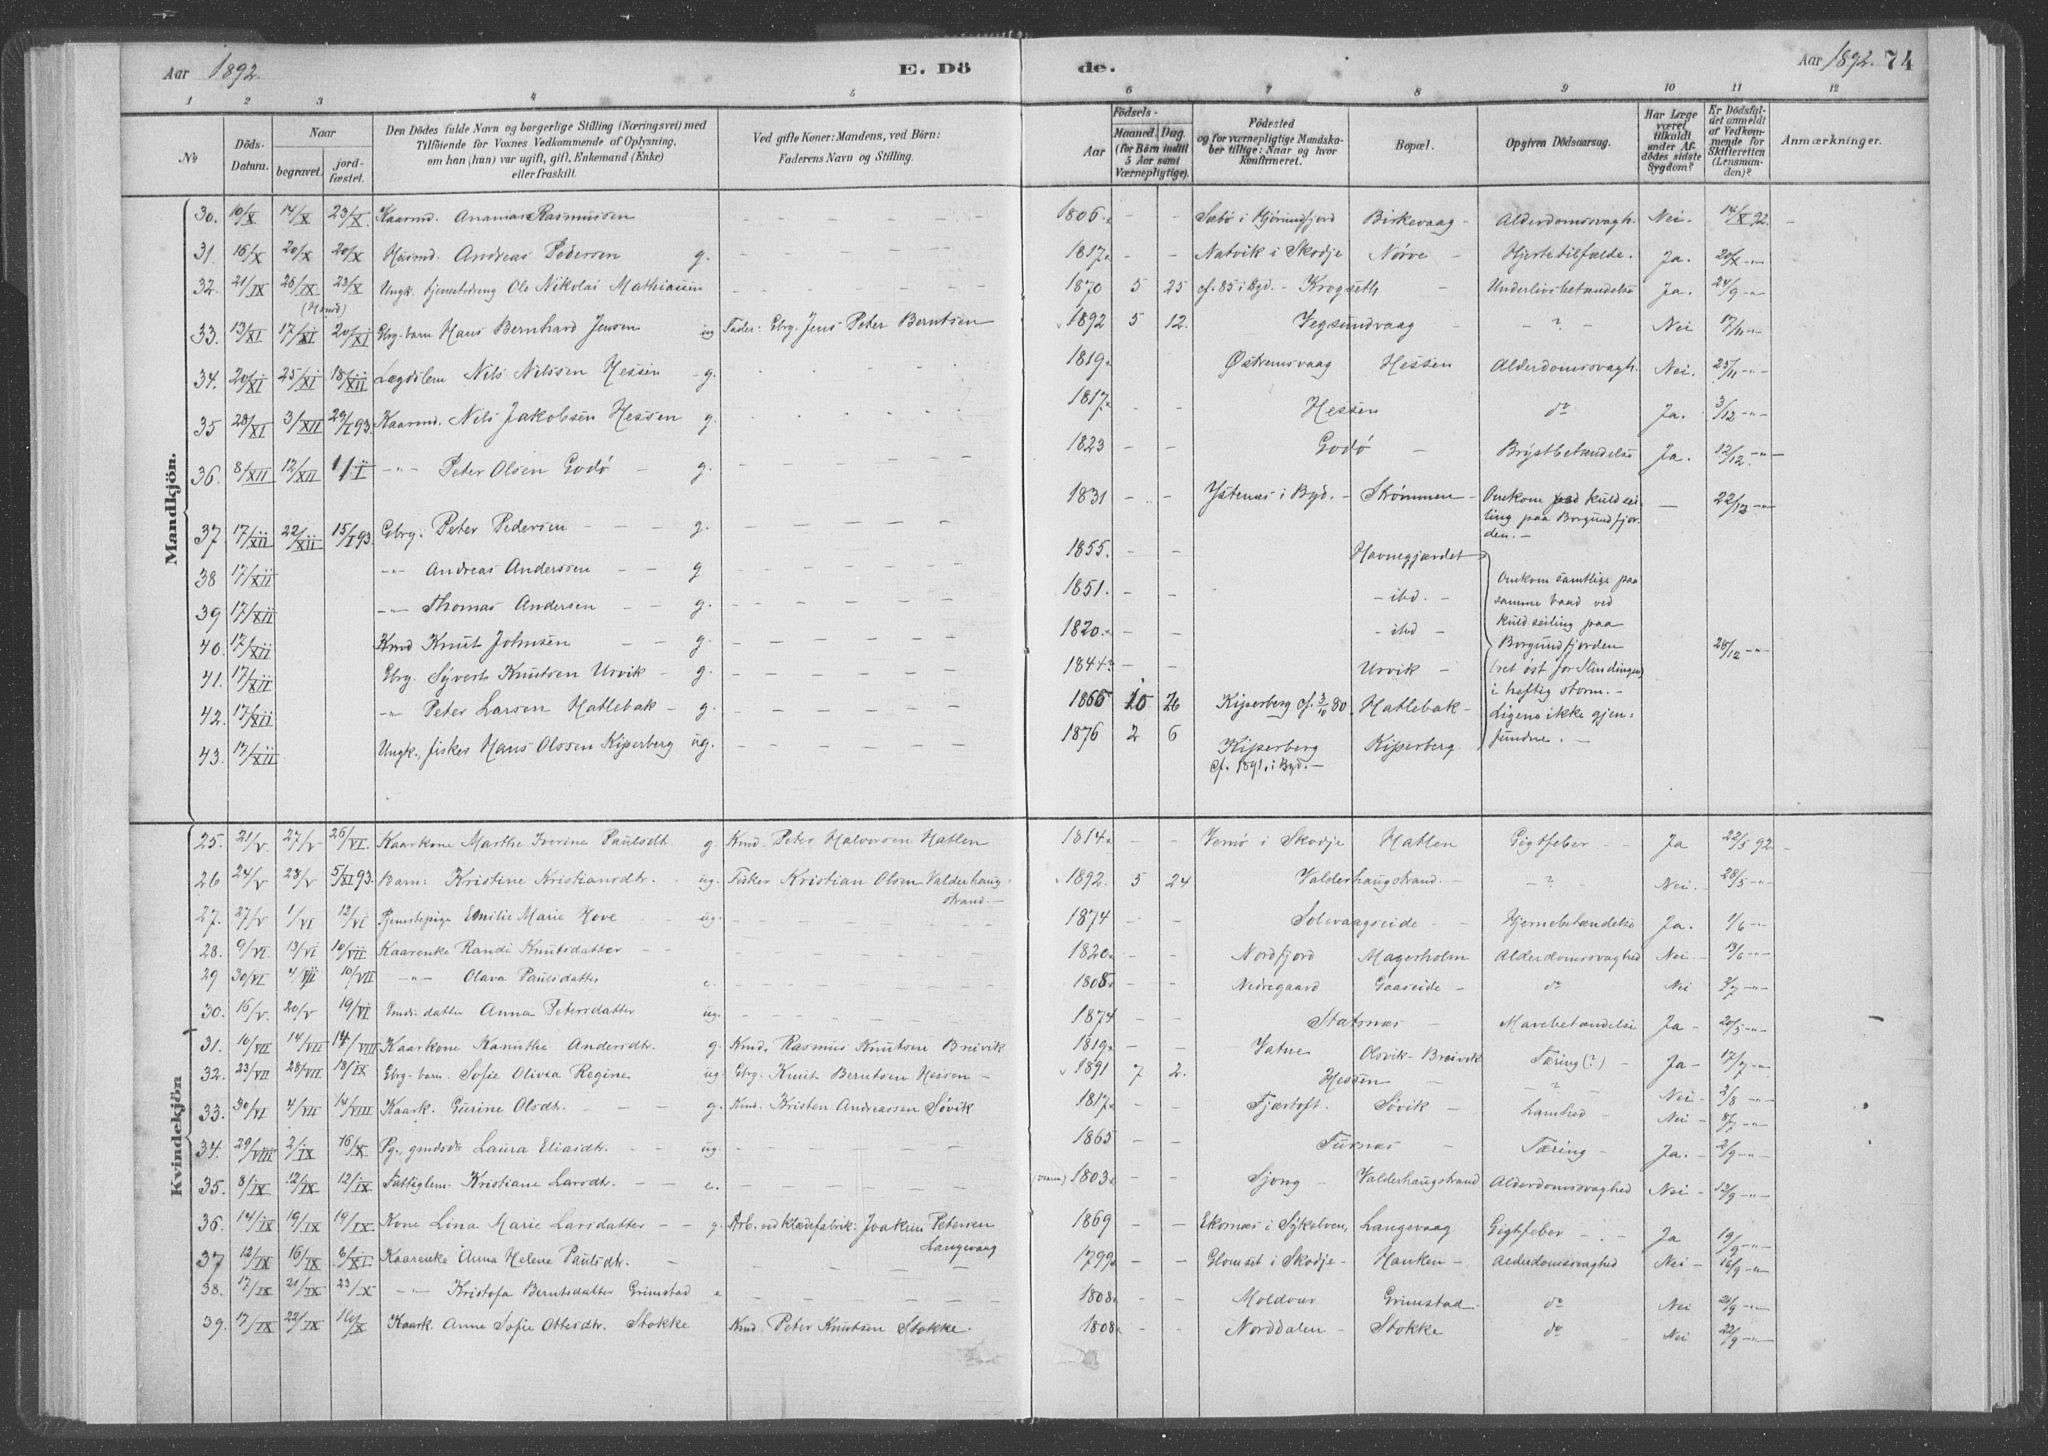 Aar 1892. E. Dö de. Aar 1892. 74
1 2 3 4 5 6 7 8 9 10 11 12
No
Döds-Datum.
Naar
begravet. jord-fæstet.
Den Dödes fulde Navn og borgerlige Stilling (Næringsvei) med
Tilföiende for Voxnes Vedkommende af Oplysning,
om han (hun) var ugift, gift, Enkemand (Enke)
eller fraskilt.
Ved gifte Koner: Mandens, ved Börn:
Faderens Navn og Stilling.
Födsels-
Aar
Maaned. Dag.
(for Börn indtil
5 Aar samt
Værnepligtige).
Födested
og for værnepligtige Mandska-
ber tillige: Naar og hvor
konfirmeret.
Bopæl.
Opgiven Dödsaarsag.
Har Læge
været
tilkaldt
under Af-
dödes sidste
Sygdom?
Er Dödsfal-
det anmeldt
af Vedkom-
mende for
Skifteretten
(Lensman-
den)?
Anmærkninger.
Mandkjön.
30. 10/X 14/X 23/X. Kaarmd. Ananias Rasmussen 1806. - - Sæbö i Hjörundfjord Birkevaag - Alderdomssvagh. Nei. 14/X 92. -
31. 16/X 20/X 20/X Husmd. Andreas Pedersen g. 1817. - - Natvik i Skodje Nörve - Hjertetilfælde. Ja. 20/X -"-
32. 21/IX 26/IX 23/X Ungk. tjenestedreng Ole Nikolai Mathiasen 1870 5 25 cf. 85 i Byd. - Krogseth - Underlivsbetændelse Ja. 24/9 -"-
33. 13/XI 17/XI 20/XI Gbrg. barn Hans Bernhard Jensen ug Fader: Gbrg. Jens Peter Berntsen 1892 5 12. Vegsundvaag - - ? - Nei 17/11 -"-
34. 20/XI 25/XI 18/XII Lægdslem Nils Nilssen Hessen - g. 1819. Østremsvaag Hessen Alderdomssvagh. Nei. 25/11 -"-
35 28/XI 3/XII 29/I 93. Kaarmd. Nils Jakobsen Hessen g. 1817. - - Hessen do Ja. 3/12 -"-
36. 8/XII 12/XII 1/I -"- Peter Olsen Godø - g. 1823 - - Godø - Brystbetændelse Ja. 12/12. -"-
37. 17/XII 22/XII 15/I 93. Gbrg. Peter Pedersen - - - g. 1831 - - Ystenæs i Byd. - Strømmen - Omkom ved kuldsei-
ling paa Borgundfjor-
den. - - 22/12 -"-
38 17/XII -"- Andreas Anderssen - - g 1855. - - Havnegjærdet
39 17/XII -"- Thomas Andersen - - g. 1851. - - - ibd. -
40. 17/XII Kmd Knut Johnsen - - g. 1820. - - - ibd -
41. 17/XII Gbrg. Syvert Knutsen Urvik - g. 1844 - - Urvik -
42. 17/XII -"- Peter Larsen Hatlebak - g. 1866 10 26 Kiperberg cf. 3/10 80. Hatlebak -
43. 17/XII Ungk. fisker Hans Olssen Kiperberg ug. 1876 2 6 Kiperberg Kiperberg
cf. 1891. i Byd. -
Omkom samtlige paa
samme baad ved
kuldseiling paa
Borgundfjorden
(ret øst for Slindingen)
i heftig storm. -
Ligene ikke gjen-
fundne. -
28/12 -"-
Kvindekjön
25. 21/V. 27/V 26/VI. Kaarkone Marthe Iverine Paulsdt. g. Kmd. Peter Halvorsen Hatlen 1814. - - Vemö i Skodje Hatlen Gigtfeber - - Ja 22/5 92.
26 24/V 28/V 5/XI 93. Barn: Kristine Kristiansdtr. - ug. Fisker Kristian Olsen Valderhaug-
strand. - 1892. 5 24 Valderhaugstrand. - - ? - Nei. 28/5 -"-
27. 27/V 1/VI 12/VI Tjenestepige Emilie Marie Hove ug. 1874 - - Solevaagseide - Hjernebetændelse Ja. 1/6 -"-
28. 9/VI. 13/VI 10/VII Kaarenke Randi Knutsdatter - - 1820. - - Nordfjord Magerholm Alderdomssvaghed Nei - 13/6 -"-
29 30/VI 4/VII 10/VII -"- Olava Paulsdatter e. 1808 - - Nedregaard Gaaseide - do Nei 4/7 -"-
30. 16/V. 20/V 19/VI Gmds. datter Anna Petersdatter ug. 1874 - - Statsnæs - Mavebetændelse Ja - 20/5 -"-
31. 10/VII 14/VII 14/VIII Kaarkone Kanuthe Andersdtr. g. Kmd. Rasmus Knutsen Breivik 1819. - - Vatne Olsvik-Breivik Tæring (?) - Ja - 17/7 -"-
32. 23/VII 28/VII 18/IX Gbrg. barn. Sofie Olivia Regine ug. Gbrg. Knut Berntsen Hessen - 1891 7 2. Hessen - - ? - Nei - 2/8 -"-
33. 30/VI 4/VII 14/VIII Kaark. Gurine Olsdt. - - - g. Kmd. Kristen Andreassen Søvik 1817. - - Fjærtoft. Søvik - Lamhed - Nei - 8/7 -"-
34. 29/VIII 2/IX 16/X Pg., gmdsdr. Laura Eliasdtr. - - ug. 1865 - - Furnæs - Tæring - Ja. - 2/9 -"-
35. 8/IX 12/IX 12/IX Fattiglem. Kristiane Larsdtr. - - e. 1803. - - Sjong - Valderhaugstrand Alderdomssvaghed Nei - 12/9 -"-
36. 14/IX 19/IX 19/IX. Kone Lina Marie Larsdatter - - g. Arb. ved klædefabrik. Joakim Petersen
Langevaag 1869 - - Ekornæs i Sykelven, Langevaag Gigtfeber - - Ja 19/9 -"-
37 12/IX 16/IX 6/XI Kaarenke Anna Helene Paulsdtr. - 1799. - - Glomset i Skodje - Hanken - Alderdomssvaghed Nei - 16/9 -"-
38. 17/IX 21/IX 23/X -"- Kristofa Berntsdatter Grimstad e 1808. - - Moldvær Grimstad do Nei 21/9 -"-
39. 17/IX 22/IX 16/X Kaark. Anne Sofie Ottersdtr. Stokke Kmd. Peter Knutsen Stokke. 1808. - - Norddalen - Stokke do Nei 22/9 -"-